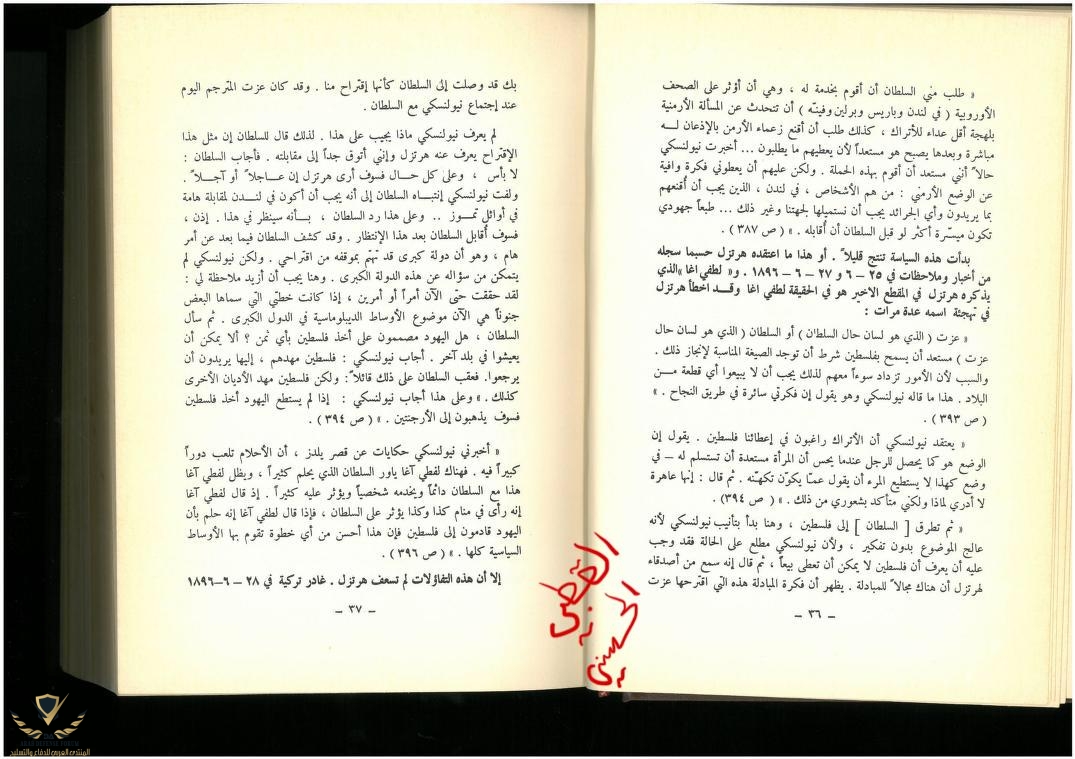 « طلب مني السلطان أن أقوم بخدمة له ، وهي أن أؤثر على الصحف
الأوروبية ( في لندن وباريس وبرلين وفيينه ) أن تتحدث عن المسألة الأرمنية
بلهجة أقل عداء للأتراك ، كذلك طلب أن أقنع زعماء الأرمن بالإذعان لـــه
مباشرة وبعدها يصبح هو مستعداً لأن يعطيهم ما يطلبون ... أخبرت نيولنسكي
حالاً أنني مستعد أن أقوم بهذه الحملة . ولكن عليهم أن يعطوني فكرة وافية
عن الوضع الأرمني : من هم الأشخاص ، في لندن ، الذين يجب أن أقنعهم
بما يريدون وأي الجرائد يجب أن نستميلها لجهتنا وغير ذلك ... طبعاً جهودي
تكون ميسّرة أكثر لو قبل السلطان أن أقابله . » ( ص ٣٨٧ ) .
بدأت هذه السياسة تنتج قليلاً . أو هذا ما اعتقده هرتزل حسبما سجله
من أخبار وملاحظات في ٢٥ – ٦ و ٢٧ – ٦ – ١٨٩٦ . و« لطفي اغا »الذي
يذكره هرتزل في المقطع الاخير هو في الحقيقة لطفي اغا وقــد اخطأ هرتزل
في تهجئة اسمه عدة مرات :
« عزت ( الذي هو لسان حال السلطان ) أو السلطان ( الذي هو لسان حال
عزت ) مستعد أن يسمح بفلسطين شرط أن توجد الصيغة المناسبة لإنجاز ذلك .
والسبب لأن الأمور تزداد سوءاً معهم لذلك يجب أن لا يبيعوا أي قطعة مـــن
البلاد . هذا ما قاله نيولنسكي وهو يقول إن فكرتي سائرة في طريق النجاح . »
( ص ٣٩٣ ) .
« يعتقد نيولنسكي أن الأتراك راغبون في إعطائنا فلسطين . يقول إن
الوضع هو كما يحصل للرجل عندما يحس أن المرأة مستعدة أن تستسلم له – في
وضع كهذا لا يستطيع المرء أن يقول عمـّا يكوّن تكهّنه . ثم قال : إنها عاهرة
لا أدري لماذا ولكني متأكد بشعوري من ذلك . » ( ص ٣٩٤) .
« ثم تطرق [ السلطان ] إلى فلسطين ، وهنا بدأ بتأنيب نيولنسكي لأنه
عالج الموضوع بدون تفكير ، ولأن نيولنسكي مطلع على الحالة فقد وجب
عليه أن يعرف أن فلسطين لا يمكن أن تعطى بيعاً ، ثم قال إنه سمع من أصدقاء
لهرتزل أن هناك مجالاً للمبادلة . يظهر أن فكرة المبادلة هذه التي اقترحها عزت
– ٣٦ –
بك قد وصلت إلى السلطان كأنها إقتراح منا . وقد كان عزت المترجم اليوم
عند إجتماع نيولنسكي مع السلطان .
لم يعرف نيولنسكي ماذا يجيب على هذا . لذلك قال للسلطان إن مثل هذا
الإقتراح يعرف عنه هرتزل وإنني أتوق جداً إلى مقابلته . فأجاب السلطان :
لا بأس ، وعلى كل حـــال فسوف أرى هرتزل إن عــاجلاً أو آجـــلاً .
ولفت نيولنسكي إنتبـــاه السلطان إلى أنه يجب أن أكون في لنـــدن لمقابلة هامة
في أوائل تمـــوز .. وعلى هذا رد السلطان ، بـــأنه سينظر في هذا . إذن ،
فسوف أقابل السلطان بعد هذا الإنتظار . وقد كشف السلطان فيما بعد عن أمر
هام ، وهو أن دولة كبرى قد تهتم بموقفه من اقتراحي . ولكن نيولنسكي لم
يتمكن من سؤاله عن هذه الدولة الكبرى . وهنا يجب أن أزيد ملاحظة لي :
لقد حققت حتى الآن أمراً أو أمرين ، إذا كانت خطتي التي سماها البعض
جنوناً هي الآن موضوع الأوساط الديبلوماسية في الدول الكبرى . ثم سأل
السلطان ، هل اليهود مصممون على أخذ فلسطين بأي ثمن ؟ ألا يمكن أن
يعيشوا في بلد آخر . أجاب نيولنسكي : فلسطين مهدهم ، إليها يريدون أن
يرجعوا. فعقب السلطان على ذلك قائلاً: ولكن فلسطين مهد الأديان الأخرى
كذلك . » وعلى هذا أجاب نيولنسكي : إذا لم يستطع اليهود أخذ فلسطين
فسوف يذهبون إلى الأرجنتين . » ( ص ٣٩٤ ) .
« أخبرني نيولنسكي حكايات عن قصر يلدز ، أن الأحلام تلعب دوراً
كبيراً فيه . فهناك لفطي آغا ياور السلطان الذي يحلم كثيراً ، ويظل لفطي آغا
هذا مع السلطان دائماً ويخدمه شخصياً ويؤثر عليه كثيراً . إذ قال لفطي آغا
إنه رأى في منام كذا وكذا يؤثر على السلطان ، فإذا قال لفطي آغا إنه حلم بأن
اليهود قادمون إلى فلسطين فإن هذا أحسن من أي خطوة تقوم بها الأوساط
السياسية كلها . » ( ص ٣٩٦ ) .
إلا أن هذه التفاؤلات لم تسعف هرتزل . غادر تركية في ٢٨ –٦–١٨٩٦
– ٣٧ –
المنتدى العربي للدفاع والتسليح